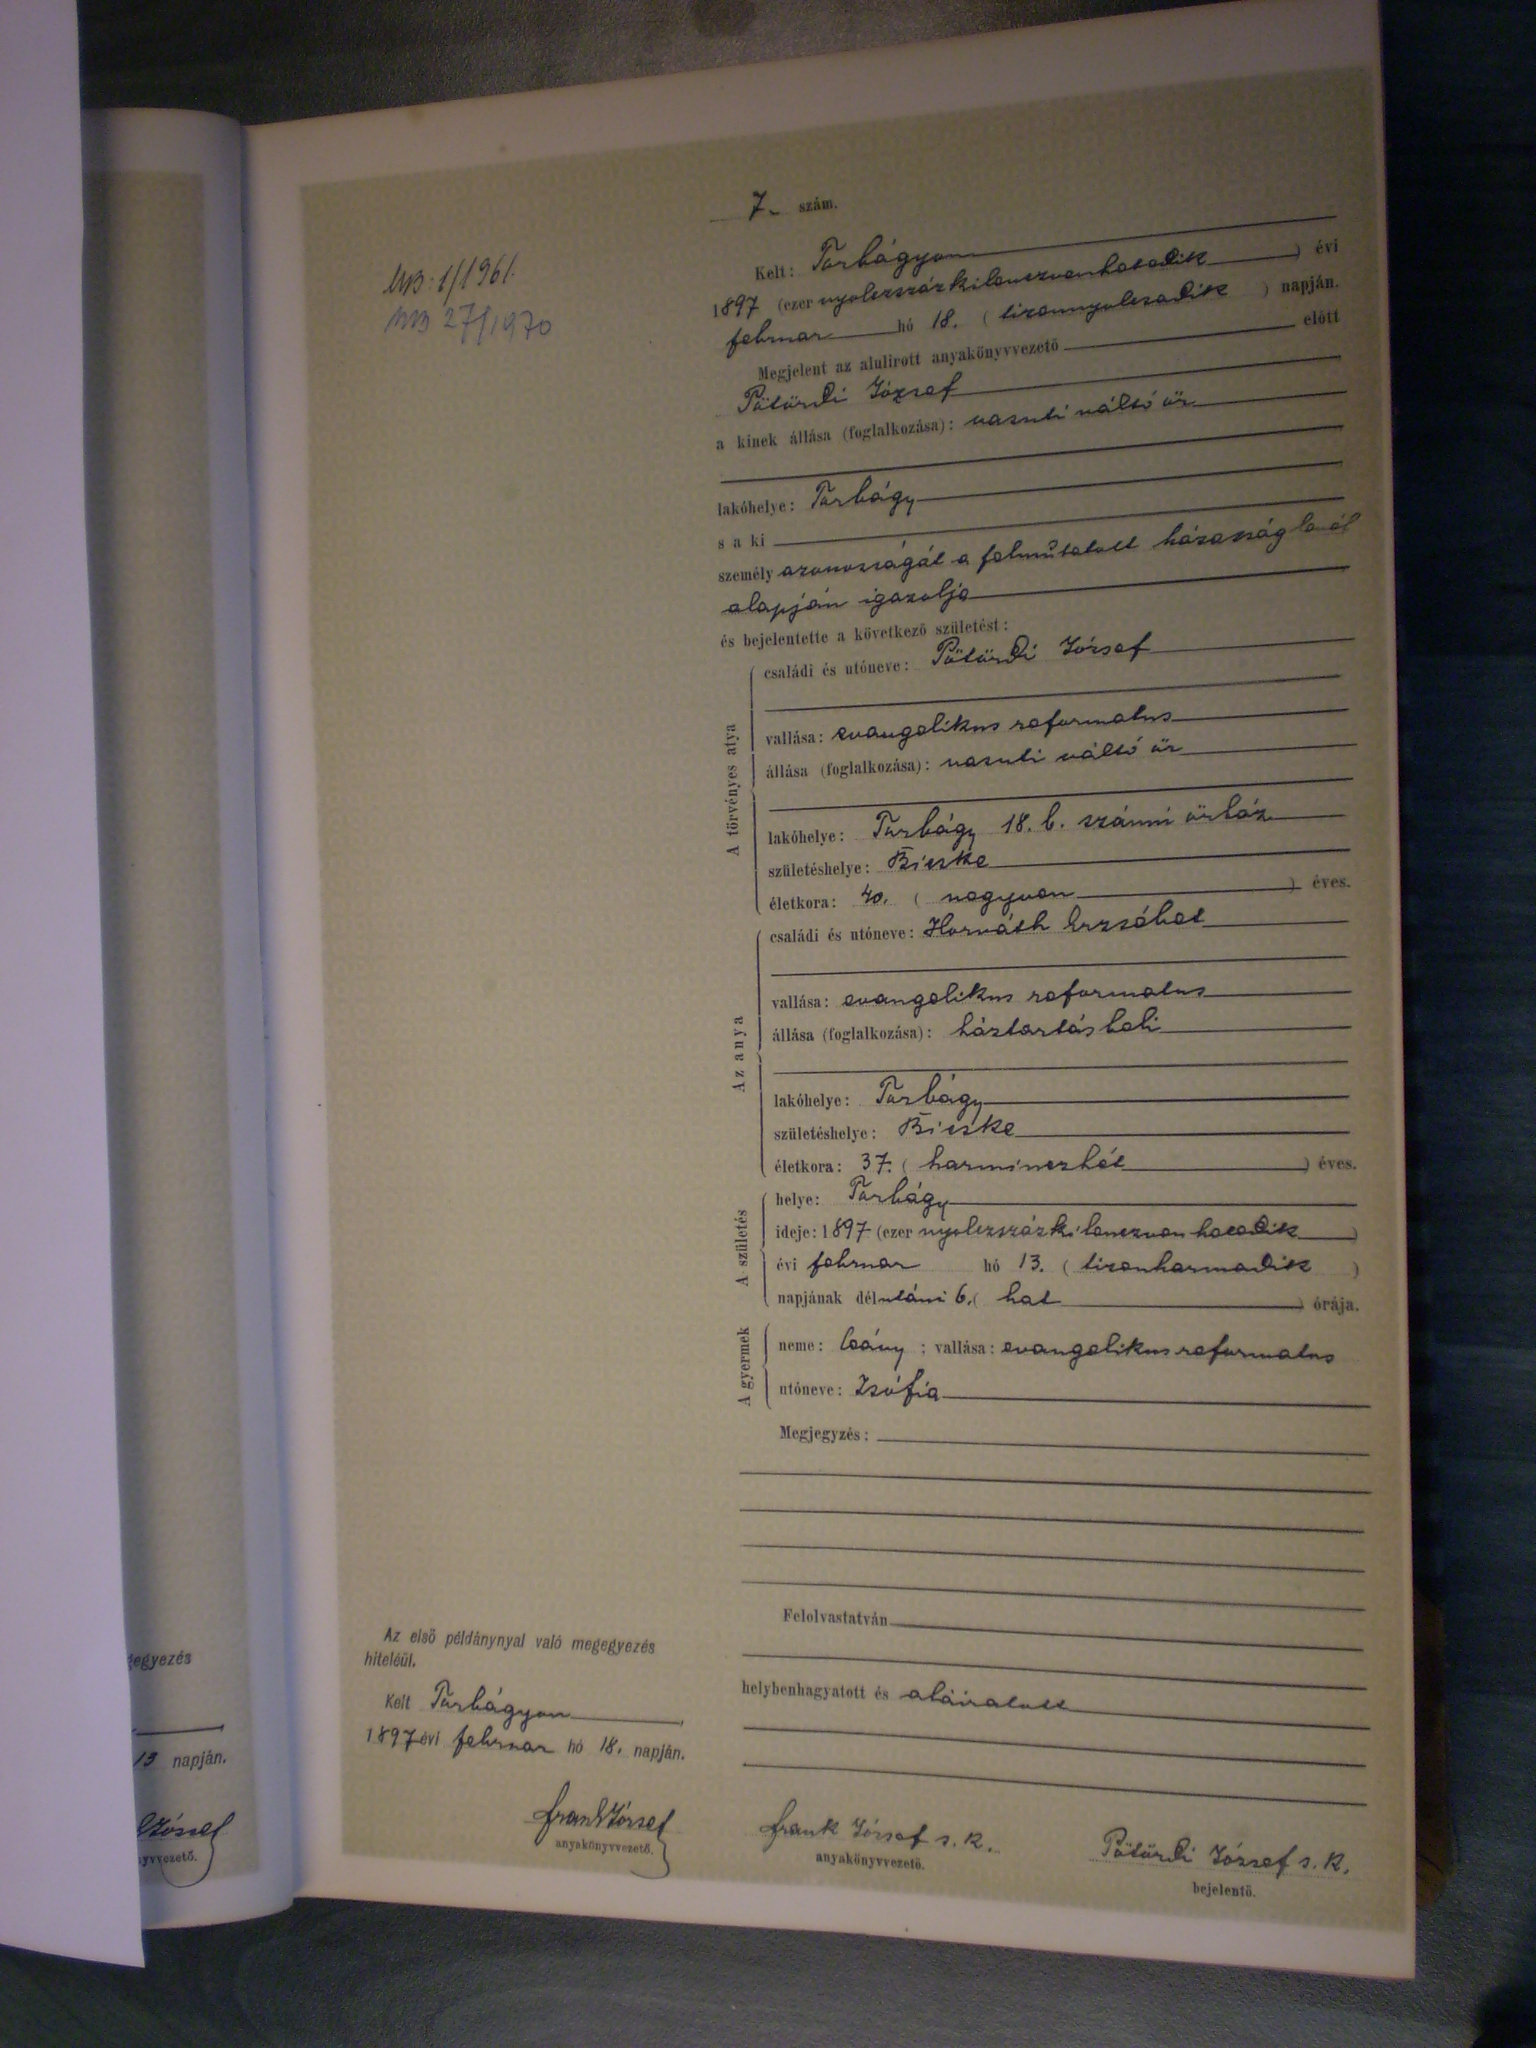 7. szám.
MB: 1/1961.
MB 27/1970
Kelt: Torbágyon
1897 (ezer nyolczszázkilenczvenhetedik) évi
februar hó 18. (tizennyolczadik) napján.
Megjelent az alulirott anyakönyvvezető előtt
Pötördi József
a kinek állása (foglalkozása): vasuti váltó őr
lakóhelye: Torbágy
s a ki
személy azonosságát a felmutatott házasság levél
alapján igazolja
és bejelentette a következő születést:
A törvényes atya
családi és utóneve: Pötördi József
vallása: evangelikus reformatus
állása (foglalkozása): vasuti váltó őr
lakóhelye: Torbágy 18. b. számú őrház
születéshelye: Bicske
életkora: 40. (negyven) éves.
Az anya
családi és utóneve: Horváth Erzsébet
vallása: evangelikus reformatus
állása (foglalkozása): háztartásbeli
lakóhelye: Torbágy
születéshelye: Bicske
életkora: 37. (harminczhét) éves.
A születés
helye: Torbágy
ideje: 1897 (ezer nyolczszázkilenczvenhetedik)
évi februar hó 13. (tizenharmadik)
napjának délutáni 6. (hat) órája.
A gyermek
neme: leány; vallása: evangelikus reformatus
utóneve: Zsófia
Megjegyzés:
Felolvastatván
helybenhagyatott és aláiratott
Frank József s. k.
anyakönyvvezető.
Pötördi József s. k.
bejelentő.
Az első példánynyal való megegyezés
hiteléül.
Kelt Torbágyon
1897 évi februar hó 18. napján.
Frank József
anyakönyvvezető.
gegyezés
13 napján.
József
yvvezető.